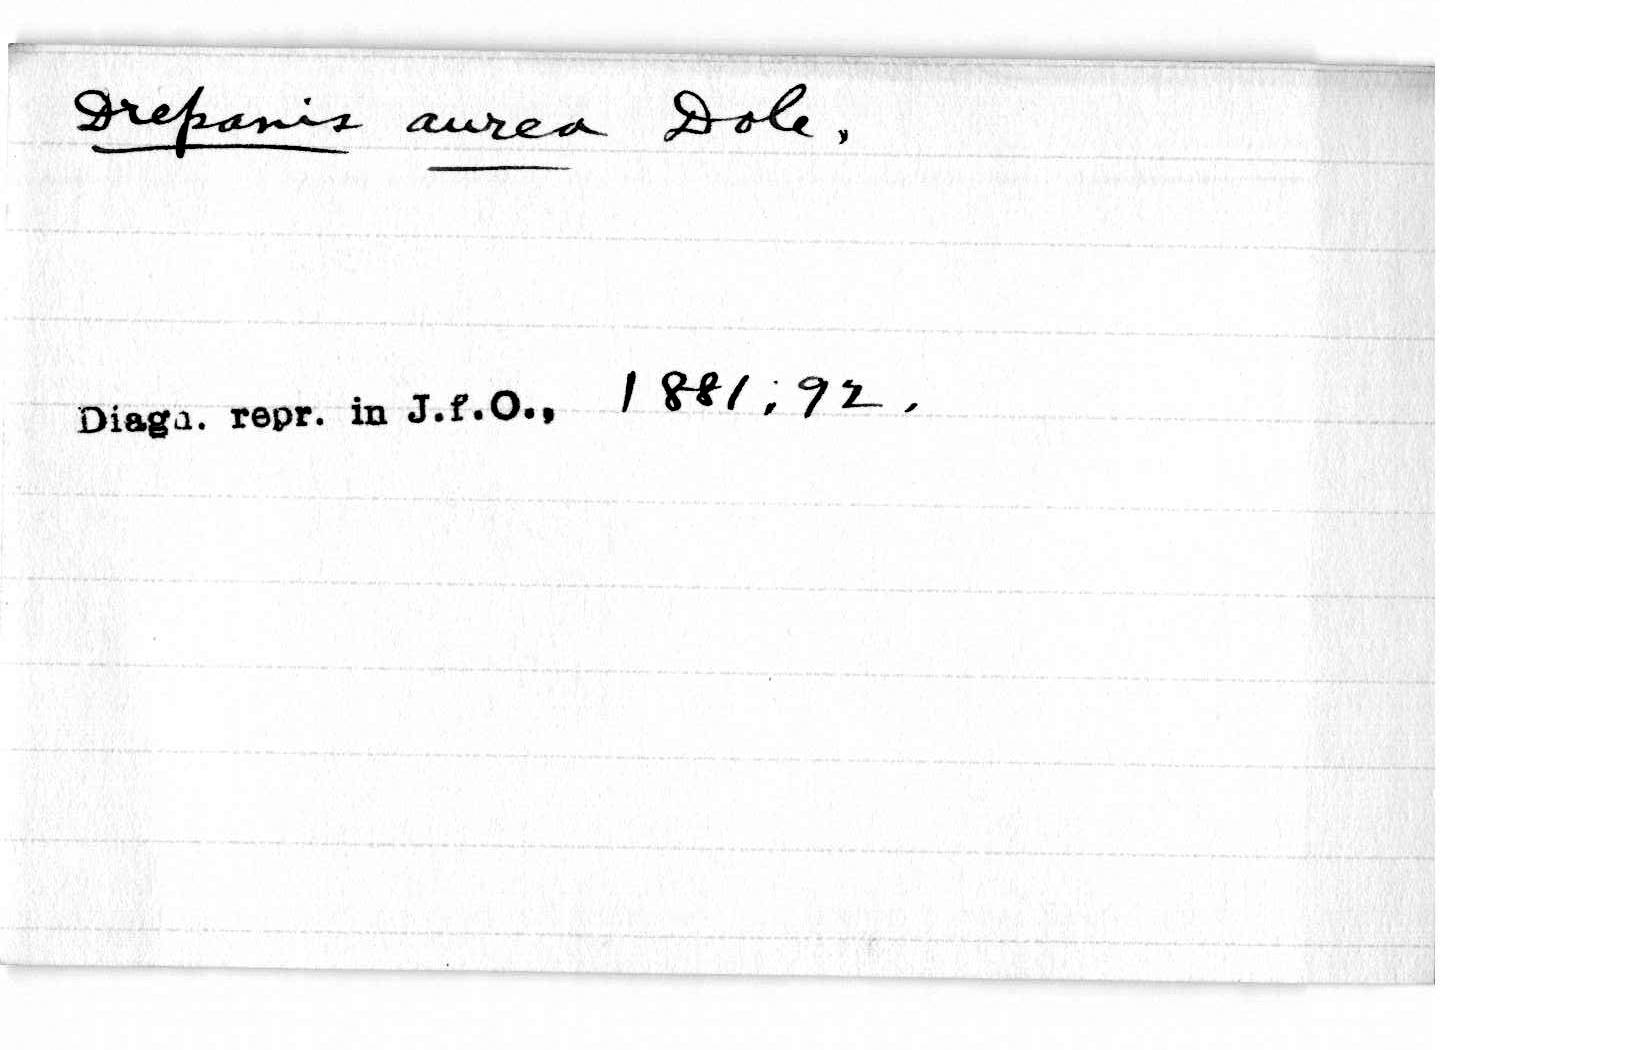 Drepanis aurea Dole,
Diagn. repr. in J.f.O., 1881; 92,